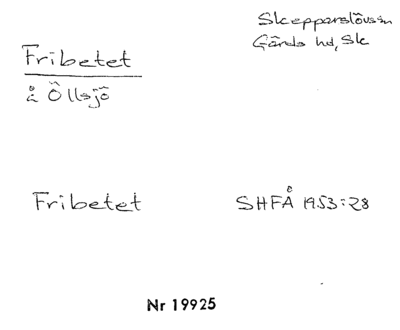 Skepparslövs sn
Gärds hd, Sk
Fribetet
å Öllsjö
Fribetet
SHFÅ 1953:28
Nr 19925